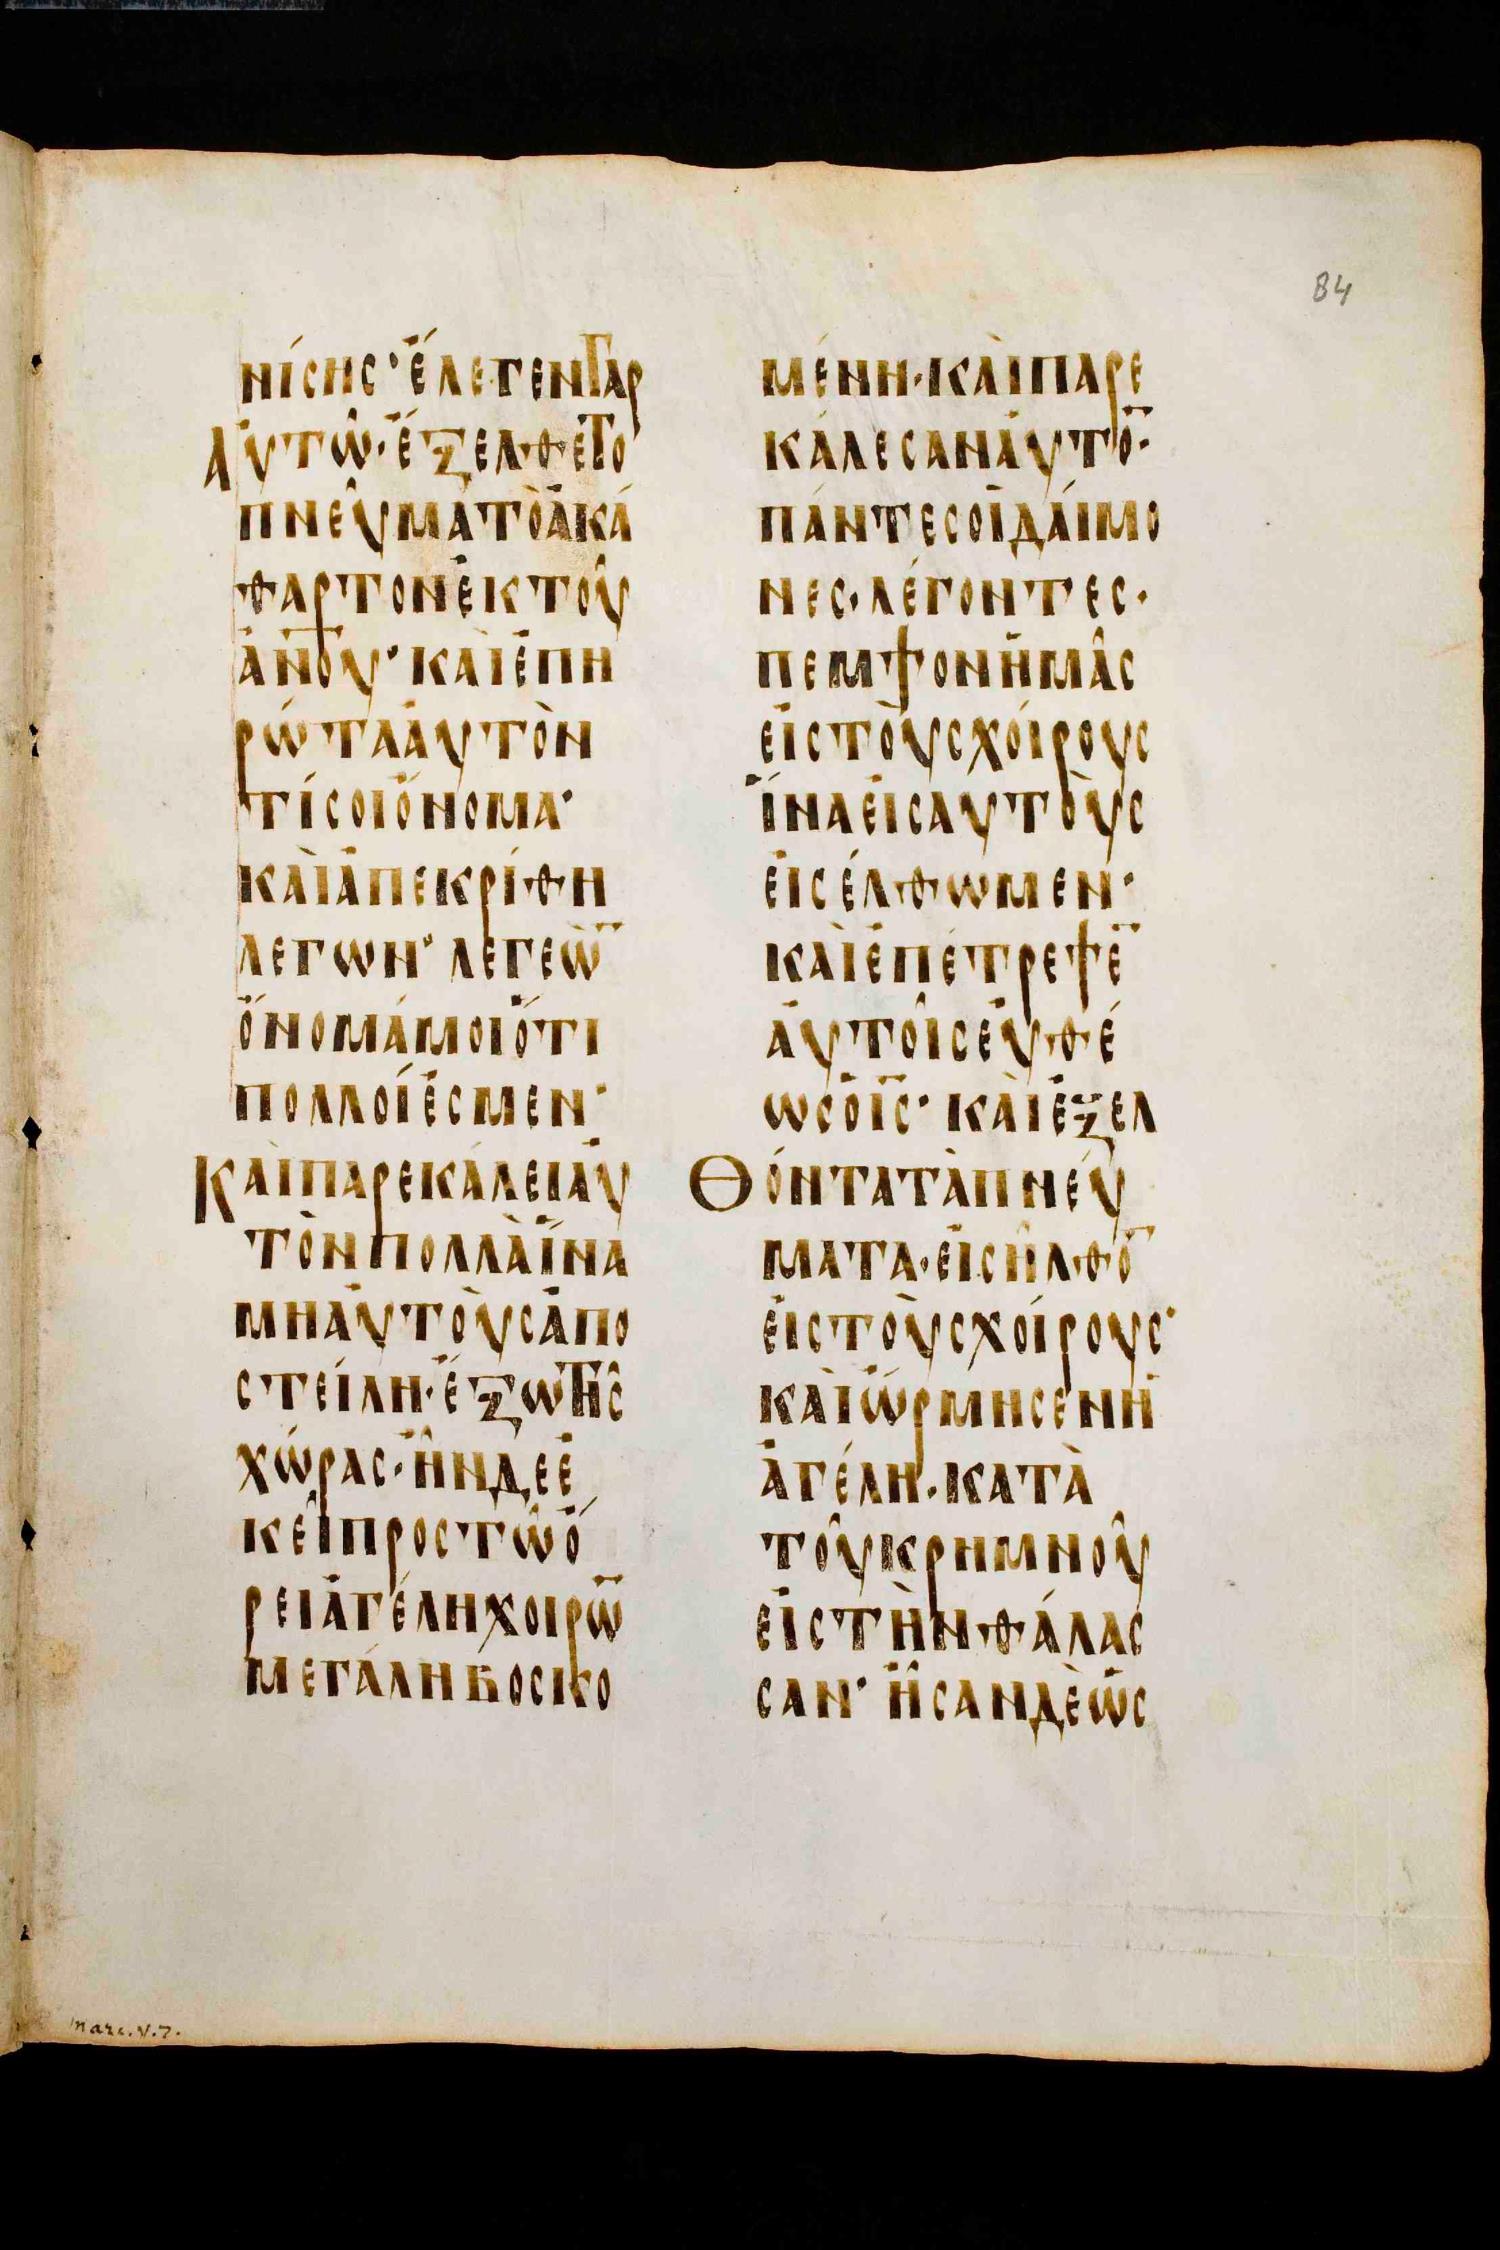 84
νίσης· ἔλεγεν γὰρ
ἀυτῶ· ἔξελθε το
πνεῦμα τὸ ἀκά
θαρτον ἐκ τοῦ
ἀν̅ο̅υ̅· κὰι ἐπη
ρώτα ἀυτὸν
τί σοι ὄνομα·
κὰι ἀπεκρίθη
λεγων· λεγεὼ̅
ὄνομά μοι ὅτι
πολλοί ἐσμεν·
Κὰι παρεκάλει ἀυ
τὸν πολλὰ ἵνα
μη ἀυτοὺς ἀπο
στείλη· ἔξω τῆς
χώρας· ἦν δε ἐ
κεῖ προς τῶ ὄ
ρει ἀγέλη χοιρω̅
μεγάλη βοσκο
μένη· κὰι παρε
κάλεσαν ἀυτο̅·
πάντες οἱ δάιμο
νες· λέγοντες·
πεμψον ἡμᾶς
εἰς τοὺς χόιρους
ἵνα εἰς αυτοὺς
εἰσέλθωμεν·
κὰι ἐπέτρεψε̅
ἀυτοῖς εὐθέ
ως ὁ ι̅ς̅· κὰι ἐξελ
Θόντα τὰ πνέυ
ματα· εἰσῆλθο̅
εἰς τοὺς χοίρους·
κὰι ὥρμησεν ἡ
ἀγέλη· κατὰ
τοῦ κρημνοῦ
εἰς τὴν θάλας
σαν· ἦσαν δὲ ὡς
Marc. V. 7.